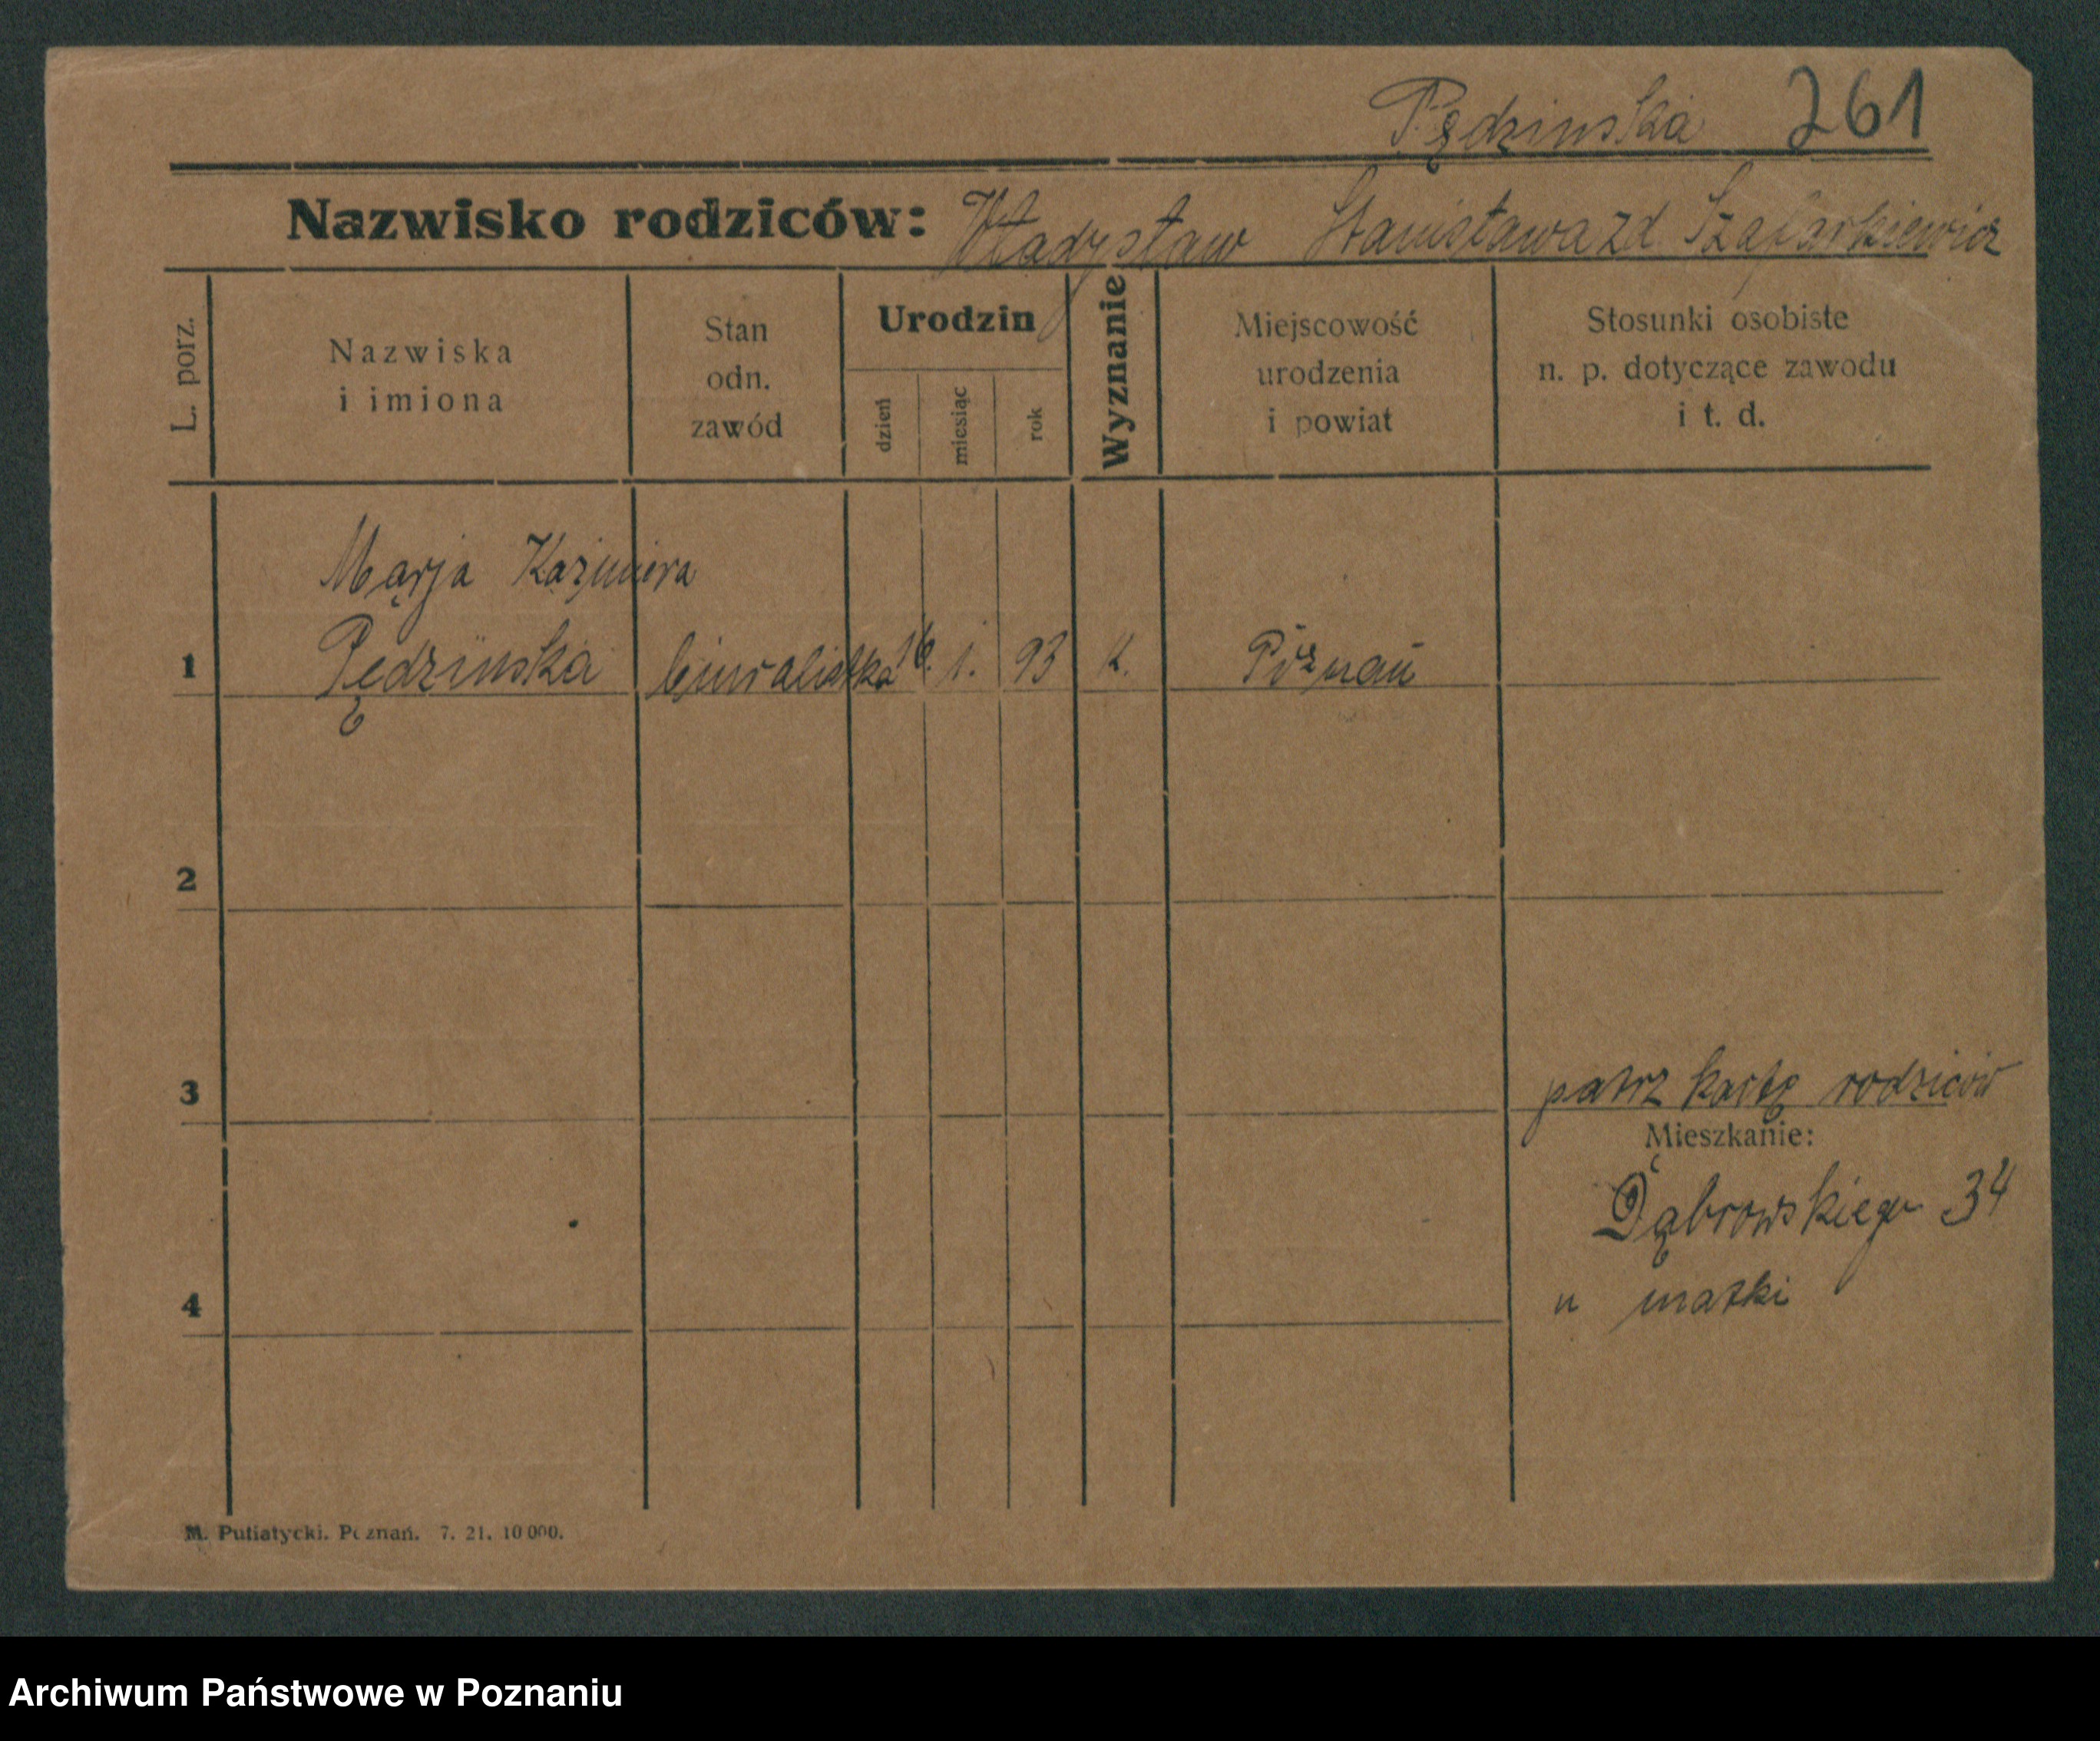 Pędzinska 261
Nazwisko rodziców: Władysław Stanisława zd Szafarkiewicz
L. porz.
Nazwiska
i imiona
Stan
odn.
zawód
Urodzin
dzień
miesiąc
rok
Wyznanie
Miejscowość
urodzenia
i powiat
Stosunki osobiste
n. p. dotyczące zawodu
i t. d.
Marja Kazimiera
1 Pędzińska biuralistka 16. 1. 93 k. Poznań
2
3 patrz kartę rodziców
Mieszkanie:
Dąbrowskiego 34
4 u matki
M. Putiatycki. Poznań. 7. 21. 10 000.
Archiwum Państwowe w Poznaniu